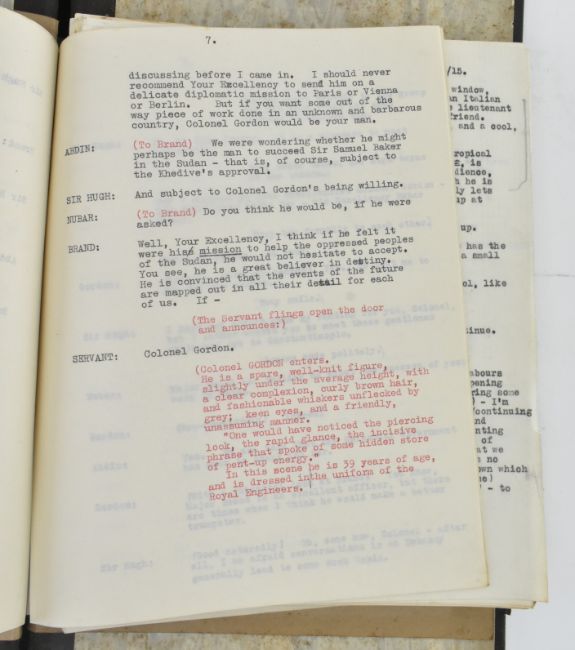 7.
discussing before I came in. I should never
recommend Your Excellency to send him on a
delicate diplomatic mission to Paris or Vienna
or Berlin. But if you want some out of the
way piece of work done in an unknown and barbarous
country, Colonel Gordon would be your man.
ABDIN: (To Brand) We were wondering whether he might
perhaps be the man to succeed Sir Samuel Baker
in the Sudan - that is, of course, subject to
the Khedive's approval.
SIR HUGH: And subject to Colonel Gordon's being willing.
NUBAR: (To Brand) Do you think he would be, if he were
asked?
BRAND: Well, Your Excellency, I think if he felt it
were his mission to help the oppressed peoples
of the Sudan, he would not hesitate to accept.
You see, he is a great believer in destiny.
He is convinced that the events of the future
are mapped out in all their detail for each
of us. If -
(The Servant flings open the door
and announces:)
SERVANT: Colonel Gordon.
(Colonel GORDON enters.
He is a spare, well-knit figure,
slightly under the average height, with
a clear complexion, curly brown hair,
and fashionable whiskers unflecked by
grey; keen eyes, and a friendly,
unassuming manner.
"One would have noticed the piercing
look, the rapid glance, the incisive
phrase that spoke of some hidden store
of pent-up energy."
In this scene he is 39 years of age,
and is dressed in the uniform of the
Royal Engineers.
/15.
window,
an Italian
lieutenant
friend.
and a cool,
tropical
is
dience,
h he is
ly lets
up at
up.
has the
a small
ol, like
tinue.
abours
pening
ring some
) - I'm
continuing
nd
nting
of
at we
s no
own which
me)
' - to